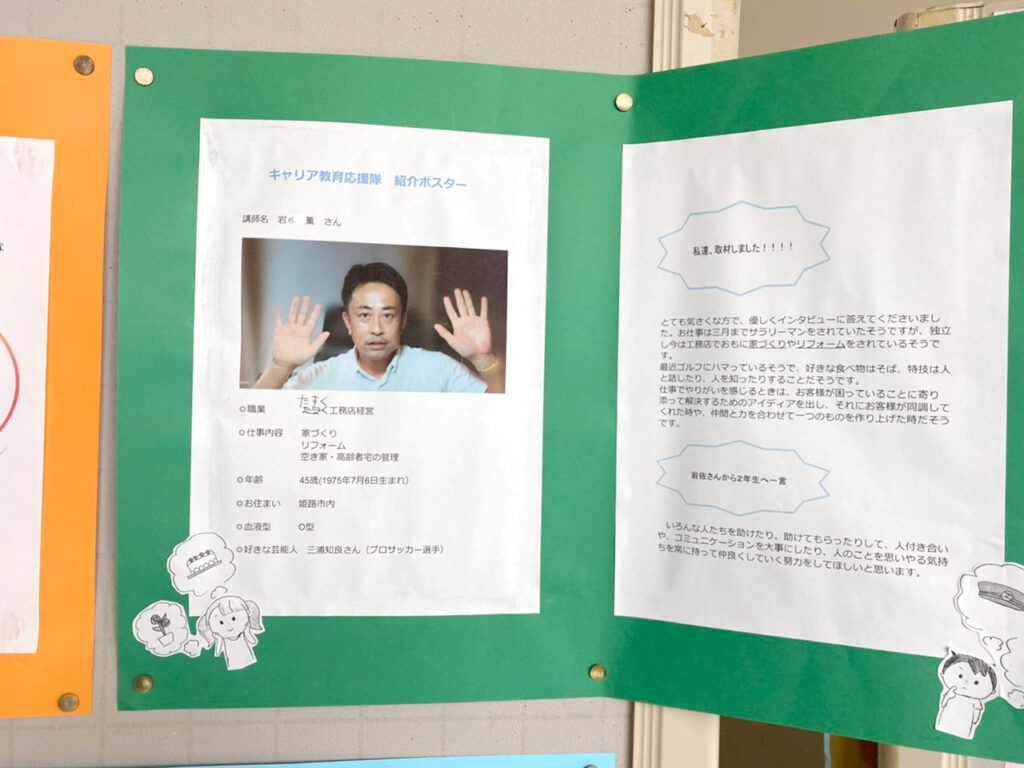 キャリア教育応援隊　紹介ポスター
講師名　岩佐　薫　さん
たすく
◎職業　工務店経営
◎仕事内容　家づくり
リフォーム
空き家・高齢者宅の管理
◎年齢　45歳(1975年7月6日生まれ)
◎お住まい　姫路市内
◎血液型　O型
◎好きな芸能人　三浦知良さん（プロサッカー選手）
私達、取材しました！！！！
とても気さくな方で、優しくインタビューに答えてくださいまし
た。お仕事は三月までサラリーマンをされていたそうですが、独立
し今は工務店でおもに家づくりやリフォームをされているそうで
す。
最近ゴルフにハマっているそうで、好きな食べ物はそば、特技は人
と話したり、人を知ったりすることだそうです。
仕事でやりがいを感じるときは、お客様が困っていることに寄り
添って解決するためのアイディアを出し、それにお客様が同調して
くれた時や、仲間と力を合わせて一つのものを作り上げた時だそう
です。
岩佐さんから２年生へ一言
いろんな人たちを助けたり、助けてもらったりして、人付き合い
や、コミュニケーションを大事にしたり、人のことを思いやる気持
ちを常に持って仲良くしていく努力をしてほしいと思います。